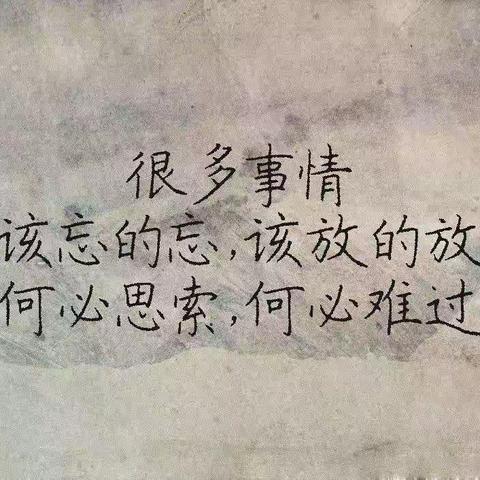 很多事情
该忘的忘,该放的放
何必思索,何必难过